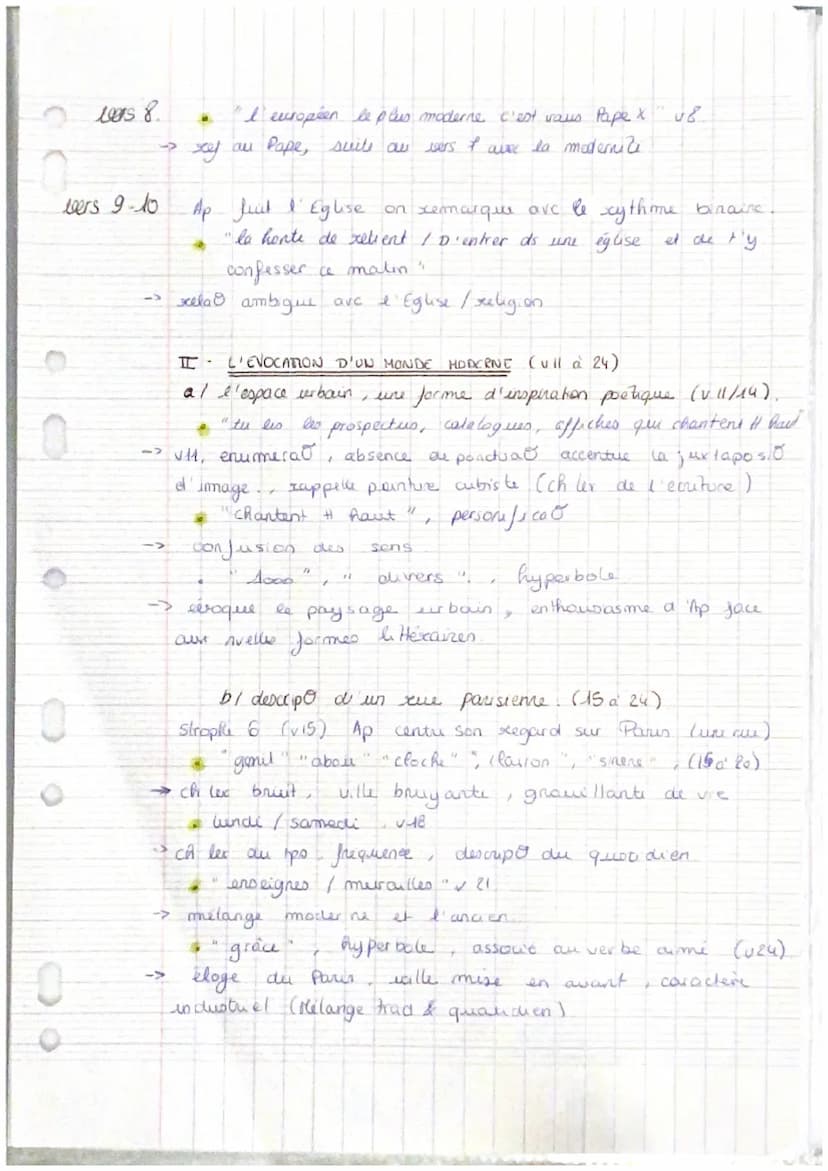 vers 8. "l'européen le plus moderne c'est vous Pape X" v8
-> ref au Pape, suite au vers 7 avec la modernité
vers 9-10 Ap fuit l'Eglise on remarque avc le rythme binaire.
"la honte de retient / D'entrer ds une église et de t'y
confesser ce matin"
-> relaθ ambigue avc l'Eglise / religion
II - L'EVOCATION D'UN MONDE MODERNE (v11 à 24)
a/ l'espace urbain, une forme d'inspiration poétique (v.11/14).
"tu lis les prospectus, catalogues, affiches qui chantent tt haut
-> v11, enumeraθ, absence de ponctuaθ accentue la juxtaposiθ
d'image., rappelle peinture cubiste (ch lex de l'écriture)
"chantent tt haut", personificaθ
-> confusion des sens
"1000", "divers"., hyperbole
-> évoque le paysage urbain, enthousiasme d'Ap face
aux nvelles formes littéraires.
b/ descripθ d'un rue parisienne. (15 à 24)
Strophe 6 (v15) Ap centre son regard sur Paris (une rue)
"gémit" "aboie" "cloche", "clairon", "sirène", (15 à 20)
-> ch lex bruit, ville bruyante, grouillante de vie
lundi / samedi v18
-> ch lex du tps fréquence, descripθ du quotidien
"enseignes / murailles" v 21
-> mélange moderne et l'ancien.
"grâce", hyperbole, associé au verbe aimé (v24)
-> éloge du Paris, ville mise en avant, caractère
industriel (Mélange trad & quotidien)